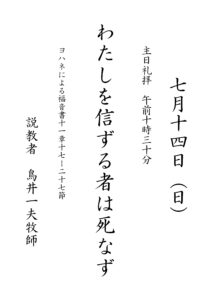 七月十四日（日）
主日礼拝　午前十時三十分
わたしを信ずる者は死なず
ヨハネによる福音書十一章十七～二十七節
説教者　鳥井一夫牧師